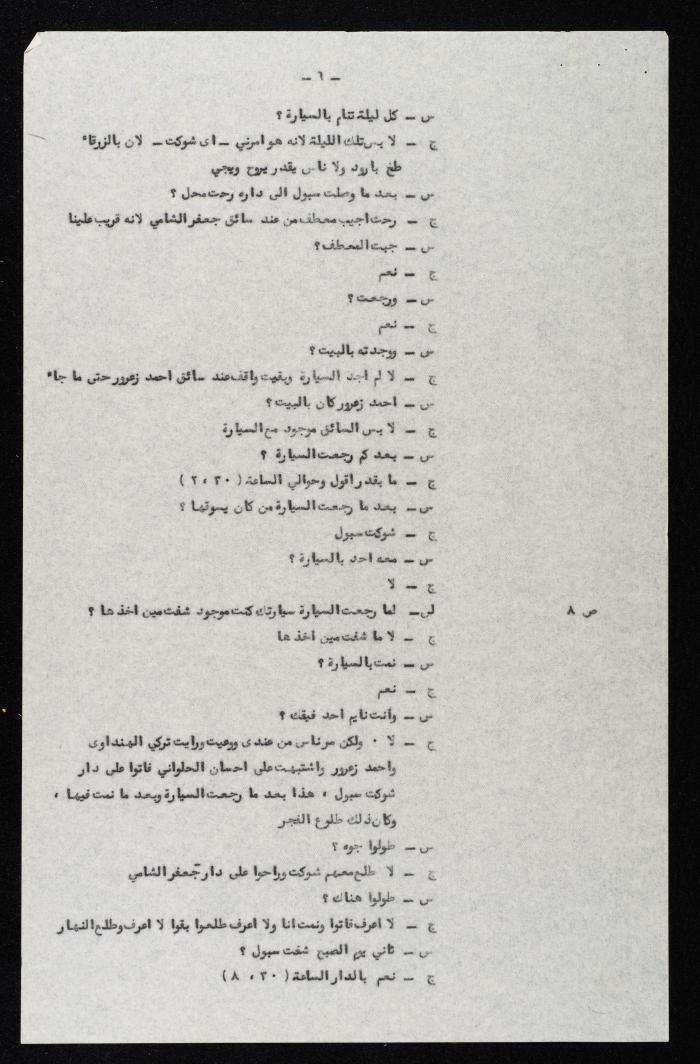 – ٦ –
س – كل ليلة تنام بالسيارة ؟
ج – لا بس تلك الليلة لانه هو امرني – اى شوكت – لان بالزرقاء
طخ بارود ولا ناس يقدر يروح ويجي
س – بعد ما وصلت سبول الى داره رحت محل ؟
ج – رحت اجيب معطف من عند سائق جعفر الشامي لانه قريب علينا
س – جبت المعطف ؟
ج – نعم
س – ورجعت ؟
ج – نعم
س – ووجدته بالبيت ؟
ج – لا لم اجد السيارة وبقيت واقف عند سائق احمد زعرور حتى ما جاء
س – احمد زعرور كان بالبيت ؟
ج – لا بس السائق موجود مع السيارة
س – بعد كم رجعت السيارة ؟
ج – ما بقدر اقول وحوالي الساعة ( ٣٠ ، ٢ )
س – بعد ما رجعت السيارة من كان يسوقها ؟
ج – شوكت سبول
س – معه احد بالسيارة ؟
ج – لا
ص ٨ س – لما رجعت السيارة سيارتك كنت موجود شفت مين اخذها ؟
ج – لا ما شفت مين اخذها
س – نمت بالسيارة ؟
ج – نعم
س – وأنت نايم احد فيقك ؟
ج – لا ٠ ولكن مر ناس من عندى ووعيت ورايت تركي الهنداوى
واحمد زعرور واشتبهت على احسان الحلواني فاتوا على دار
شوكت سبول ، هذا بعد ما رجعت السيارة وبعد ما نمت فيها ،
وكان ذلك طلوع الفجر
س – طولوا جوه ؟
ج – لا طلع معهم شوكت وراحوا على دار جعفر الشامي
س – طولوا هناك ؟
ج – لا اعرف فاتوا ونمت انا ولا اعرف طلعوا بقوا لا اعرف وطلع النهار
س – ثاني يوم الصبح شفت سبول ؟
ج – نعم بالدار الساعة ( ٣٠ ، ٨ )